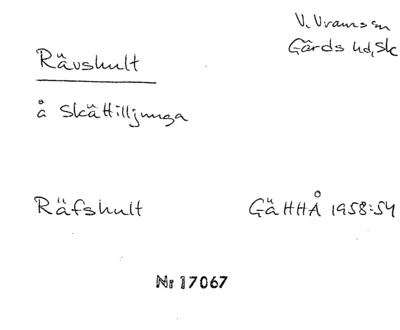 V. Vramsån
Gärds hd, Sk
Rävshult
å Skättilljunga
Räfshult GäHHÅ 1958:54
Nr 17067